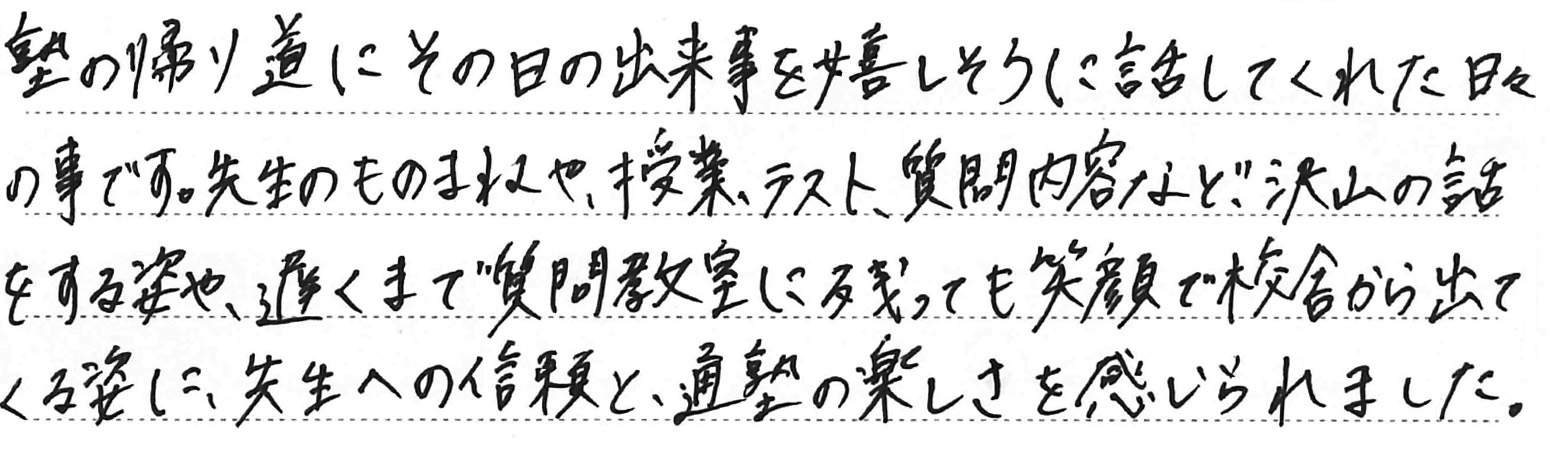 塾の帰り道にその日の出来事を嬉しそうに話してくれた日々
の事です。先生のものまねや、授業、テスト、質問内容など、沢山の話
をする姿や、遅くまで質問教室に残っても笑顔で校舎から出て
くる姿に、先生への信頼と、通塾の楽しさを感じられました。